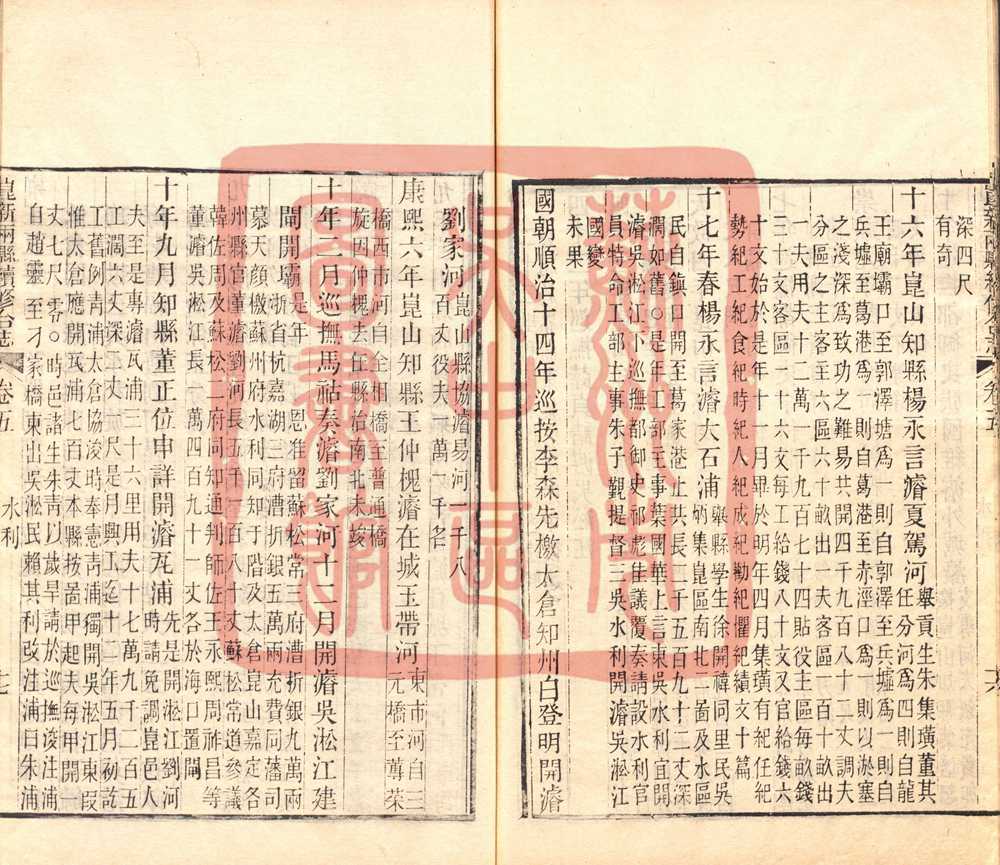 深四尺
有奇
十六年崑山知縣楊永言濬夏駕河任分河為四則自龍
舉貢生朱集璜董其
王廟壩口至郭澤塘為一則自郭澤至兵墟為一則自
兵墟至萬港為一則自萬港至赤涇口為一則以淤塞
之淺深為致功之難易共開四千九百八十二丈調夫
分五區之主區六十畝出一夫客區一百二十畝出
一夫用夫十二萬一千九百七十四貼役主區每畝錢
三十文客區一十六文每工給錢八十文又官給錢六
十文始於是年十一月畢於明年四月集璜有紀任紀
勢紀工紀食紀時紀人紀成紀勸紀懼紀績文十篇
十七年春楊永言濬大石浦
舉縣學生徐開禧同里民吳
昞集崑區南北二啚及水區
民自鎮口開至葛家港止共長二千五百九十二丈深
濶如舊○是年工部主事葉國華上言東吳水利宜開
濬吳淞江下巡撫都御史祁彪佳議覆奏請設水利官
員特命工部主事朱子覲提督三吳水利開濬吳淞江
國變
未果
國朝順治十四年巡按李森先檄太倉知州白登明開濬
劉家河
崑山縣協濬易河一千八
百丈役夫一萬一千名
康熙六年崑山知縣王仲槐濬在城玉帶河
東市河自三
元橋至薦菜
橋西市河自全相橋至普通橋
旋因仲槐去任縣治南北未竣
十年二月巡撫馬祜奏濬劉家河十一月開濬吳淞江建
閘
開壩於浙省杭嘉湖三府濬折銀五萬兩充費同藩司
慕天顏檄蘇州府水利同知于階及太倉崑山嘉定各
州縣官董濬劉河長五千一百八十丈蘇松常道參議
韓佐周及蘇松二府同知通判師佐王永熙周祚昌等
董濬吳淞江長一萬四百九十一丈各於海口置閘
十年九月知縣董正位申詳開濬瓦浦
先是開淞江劉河
後濬時請免調崑邑人
夫至是專濬瓦浦三十六里用夫十七萬九千二百五
工濶六丈深二丈一尺是月興工迄十二年五月初訖
工舊例青浦太倉協浚時奉憲青浦獨開吳淞江東叚
惟太倉應開瓦浦七百丈本縣按畐甲起夫每甲開一
丈七尺零○時邑諸生朱靑以歲旱請於巡撫浚注浦
自趙靈至刁家橋東出吳淞民賴其利改注浦曰朱浦
崑新兩縣續修合志
卷五
水利